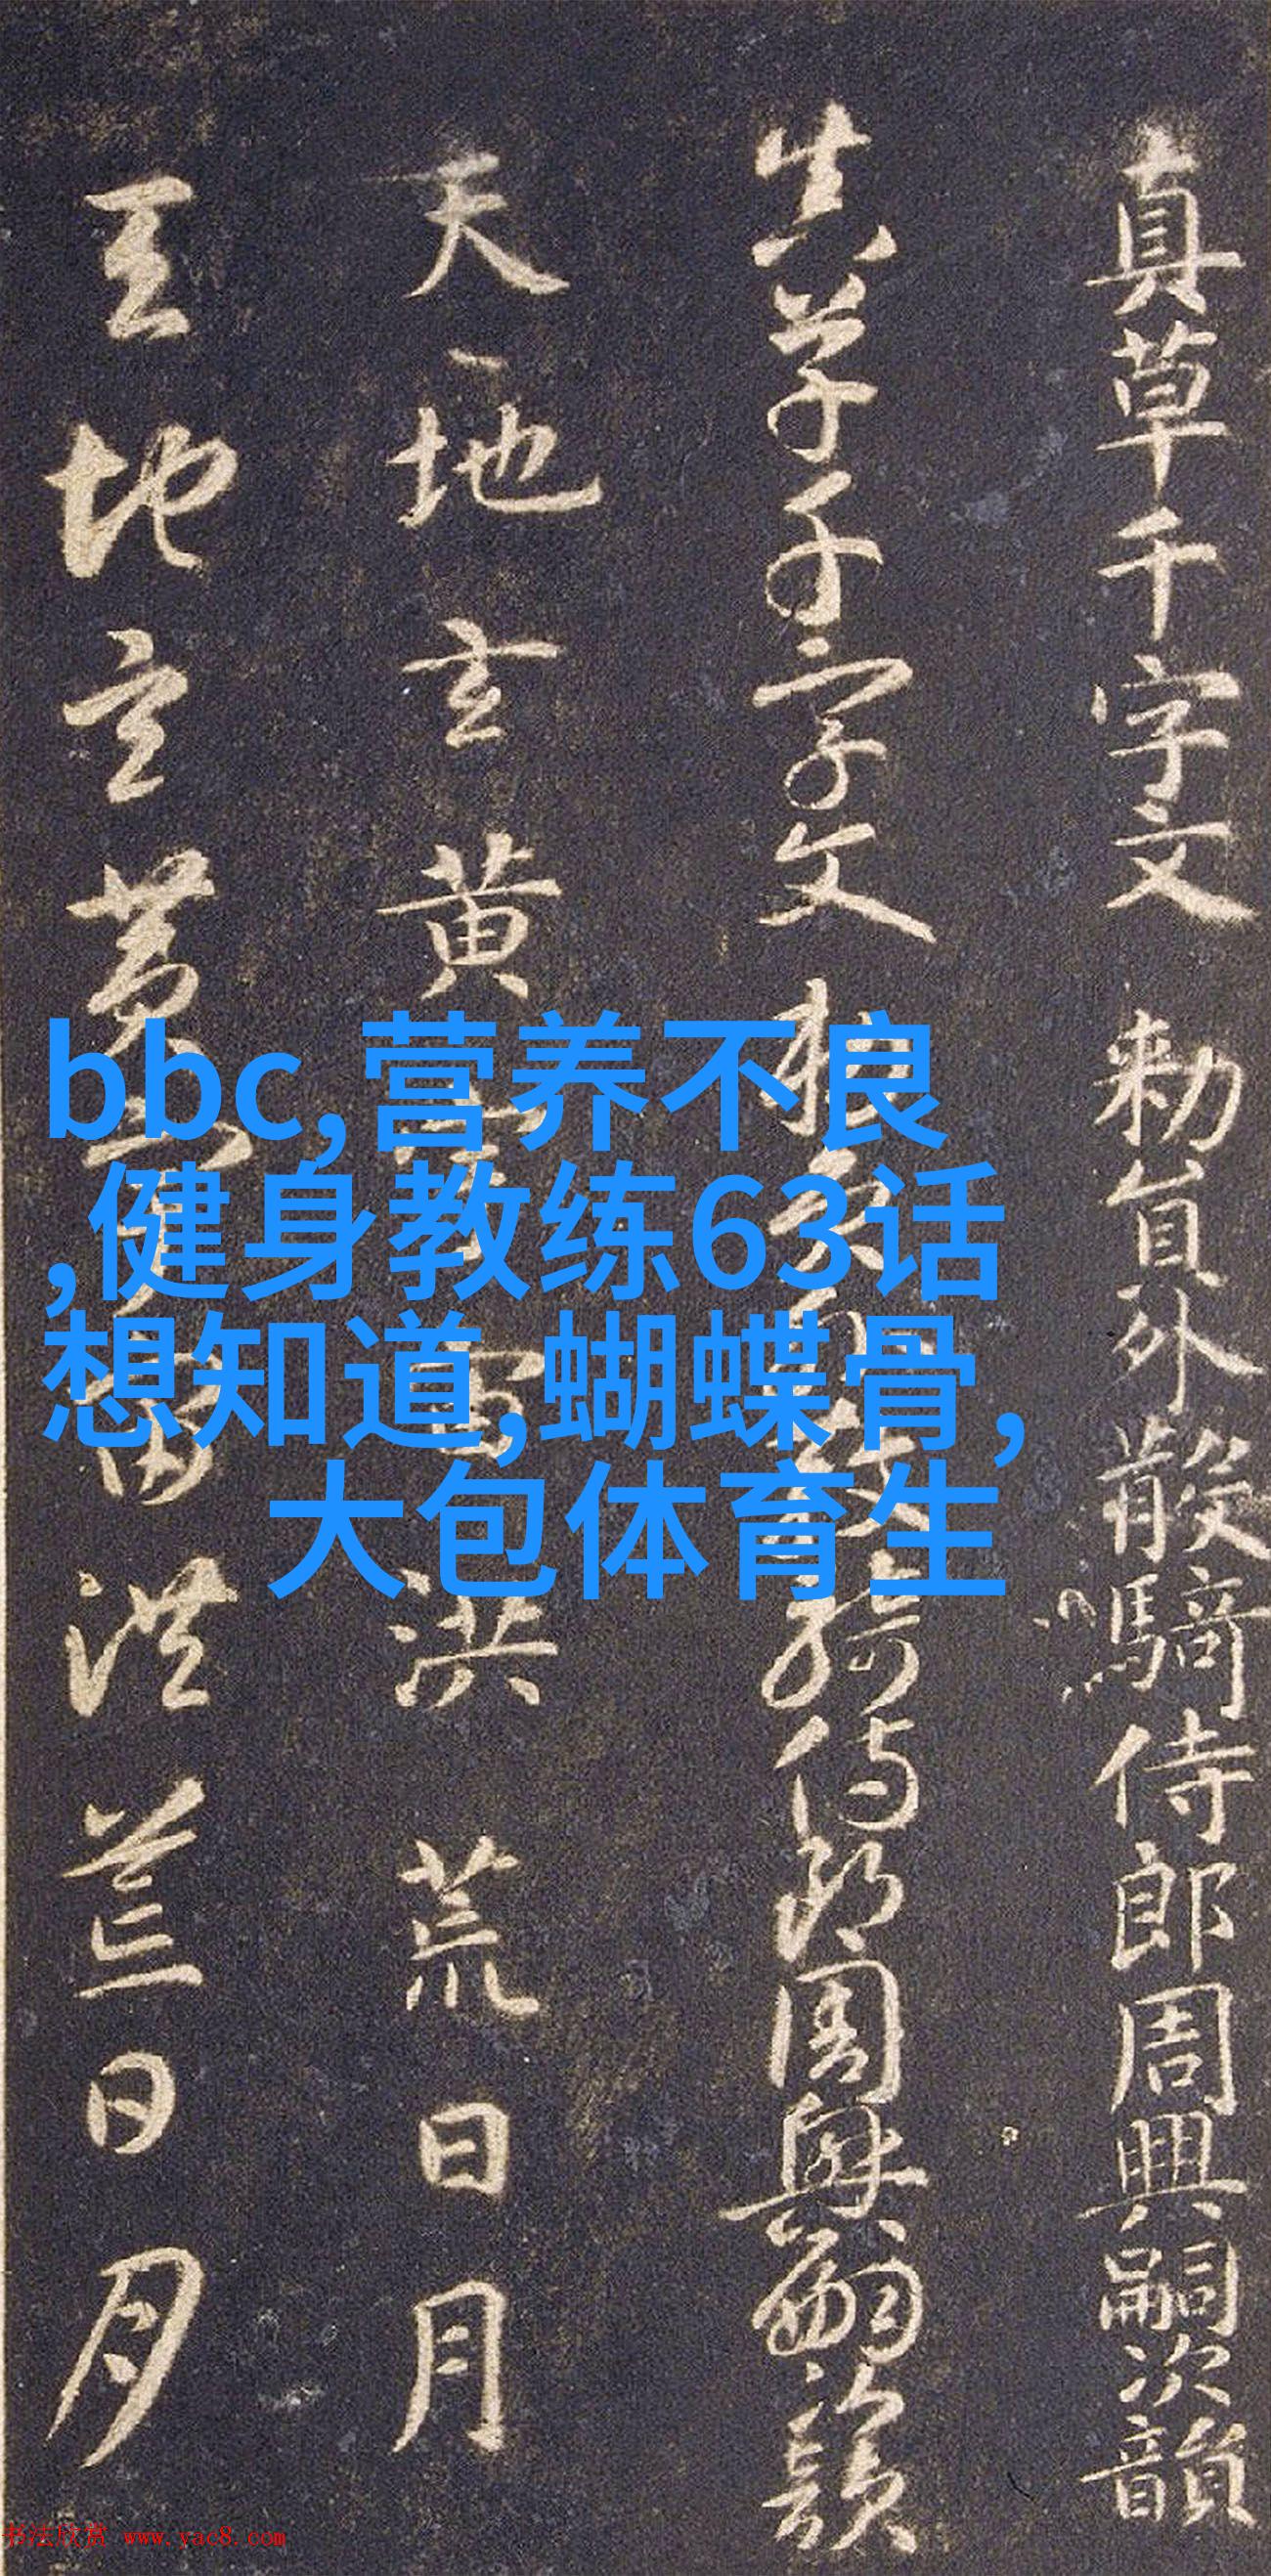 真草千字文 勅員外散騎侍郎周興嗣次韻
真草千字文 勅員外散騎侍郎周興嗣次韻
天地玄黄宇宙洪荒日月
天地玄黄宇宙洪荒日月
bbc,营养不良
,健身教练63话
想知道,蝴蝶骨,
大包体育生
书法欣赏 www.yac8.com